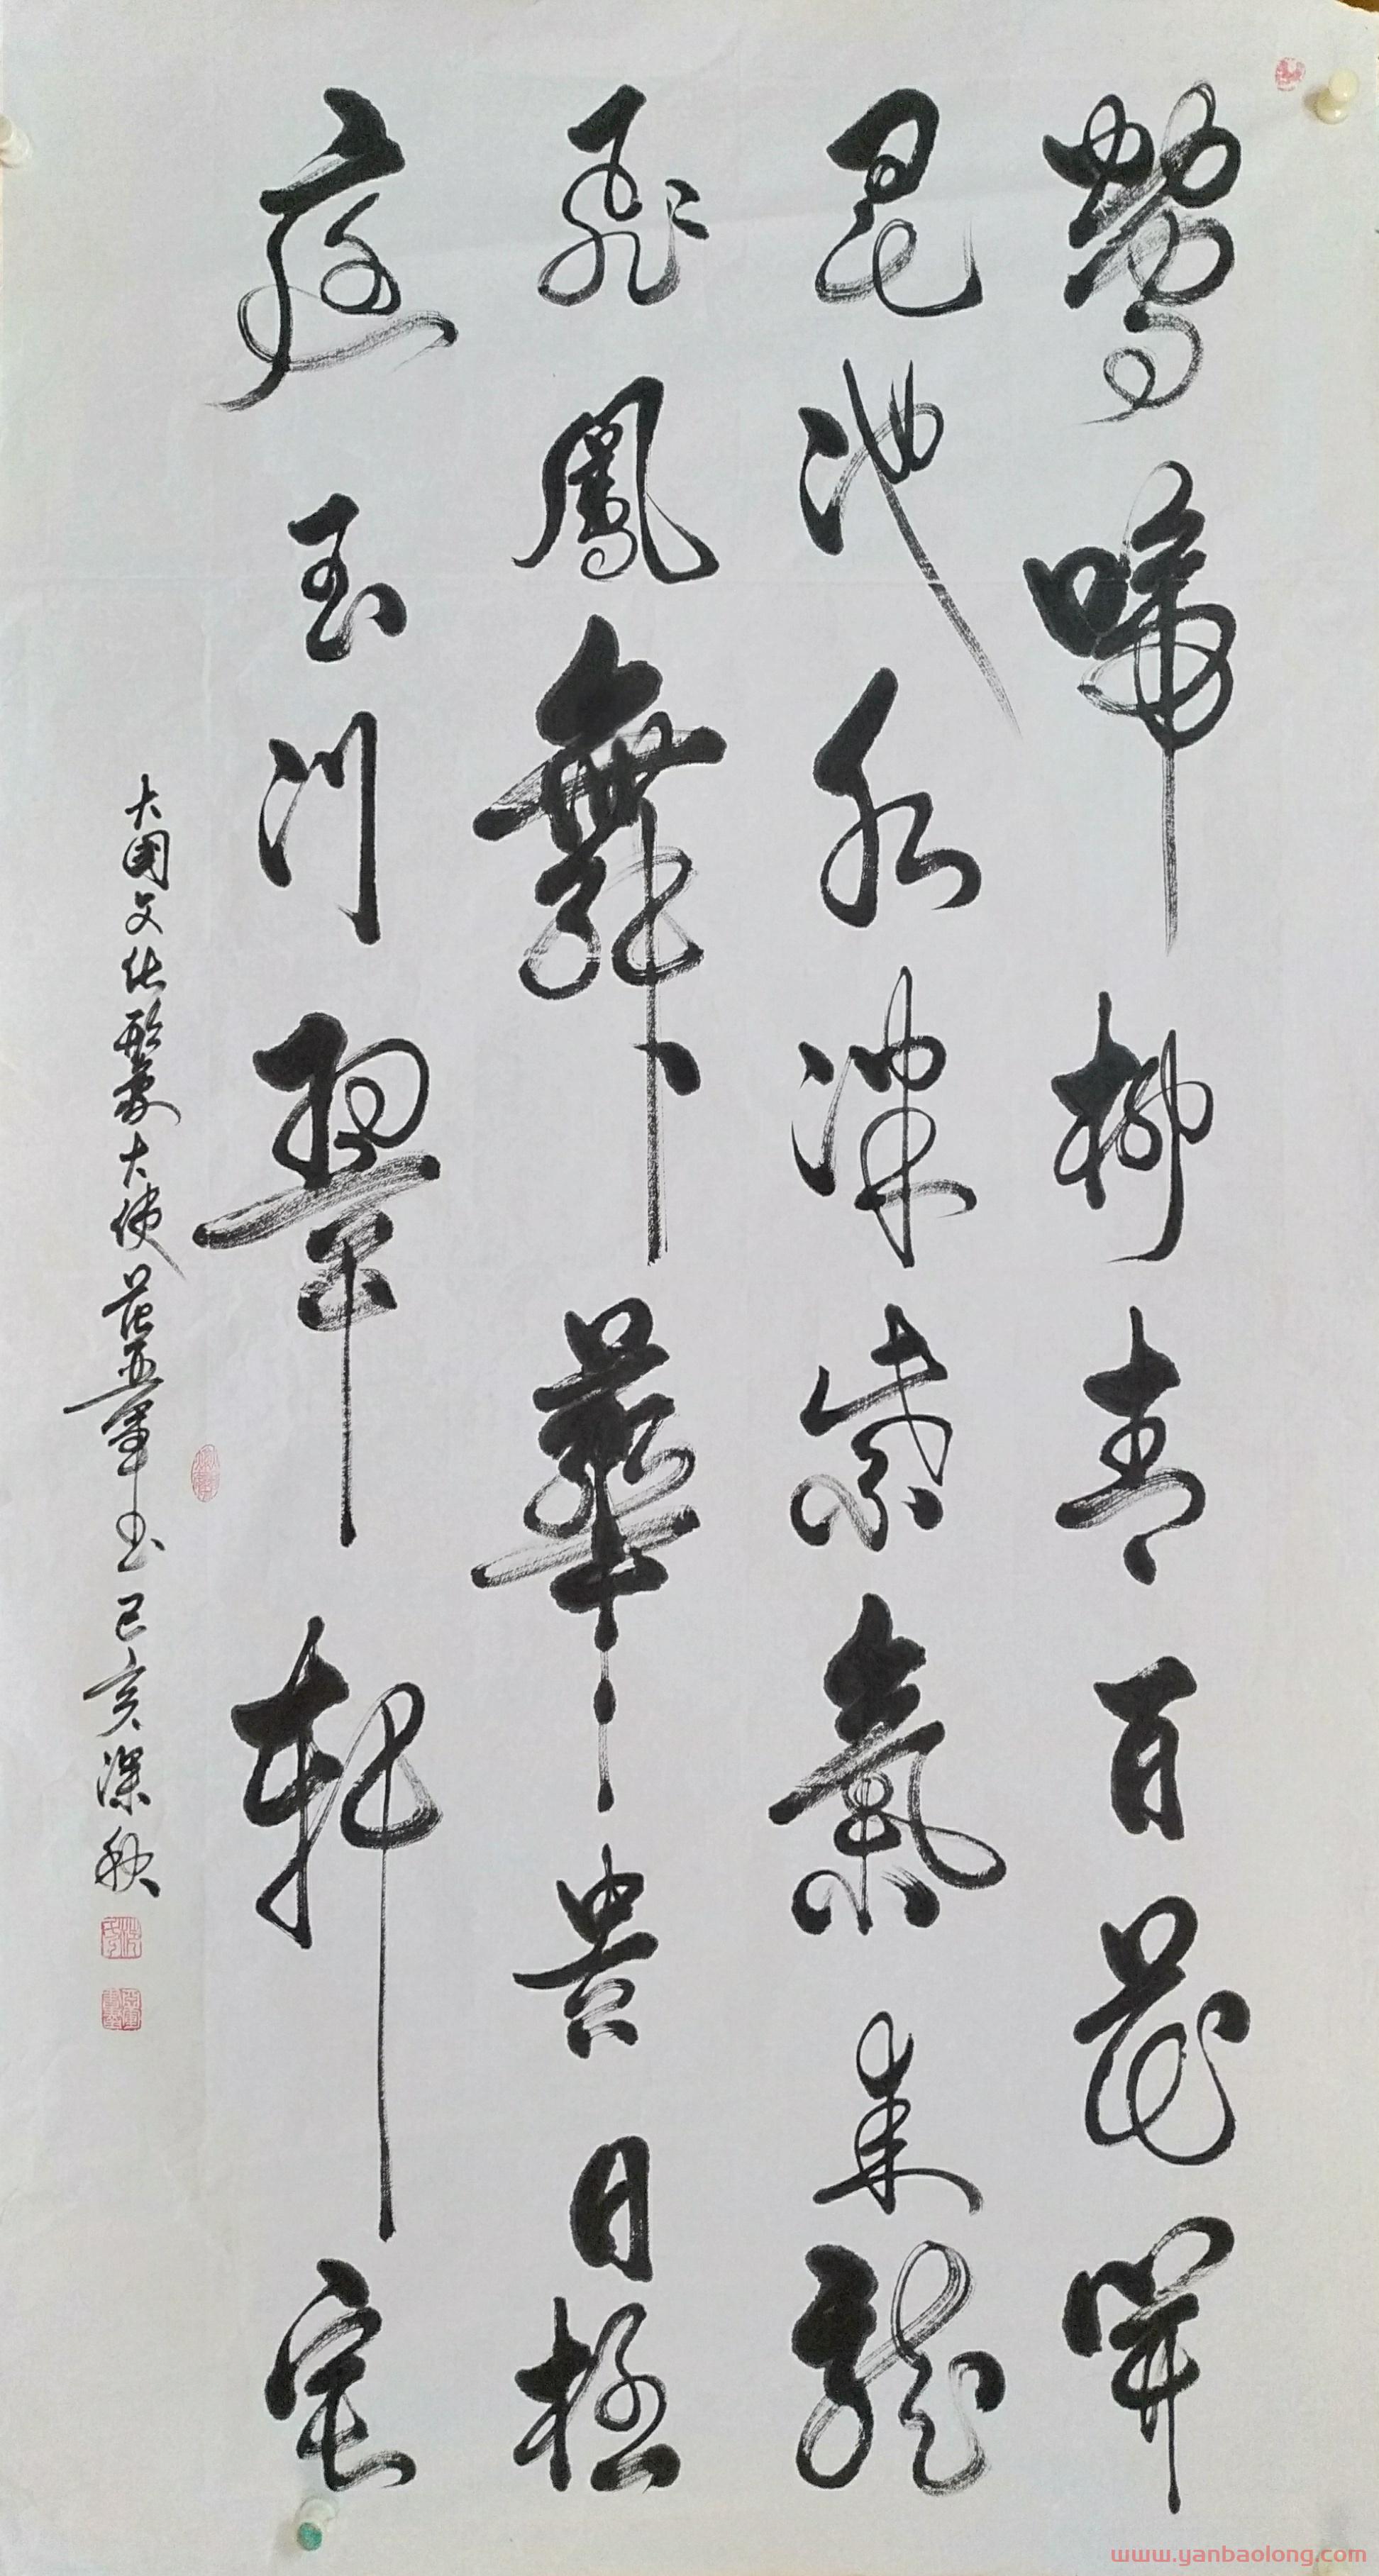 鶯啼柳青百花開
昆池水深紫氣来龍
飛鳳舞華貴日極
庭玉川翠軒宅
大国文化形象大使范亚軍书己亥深秋
www.yanbaolong.com